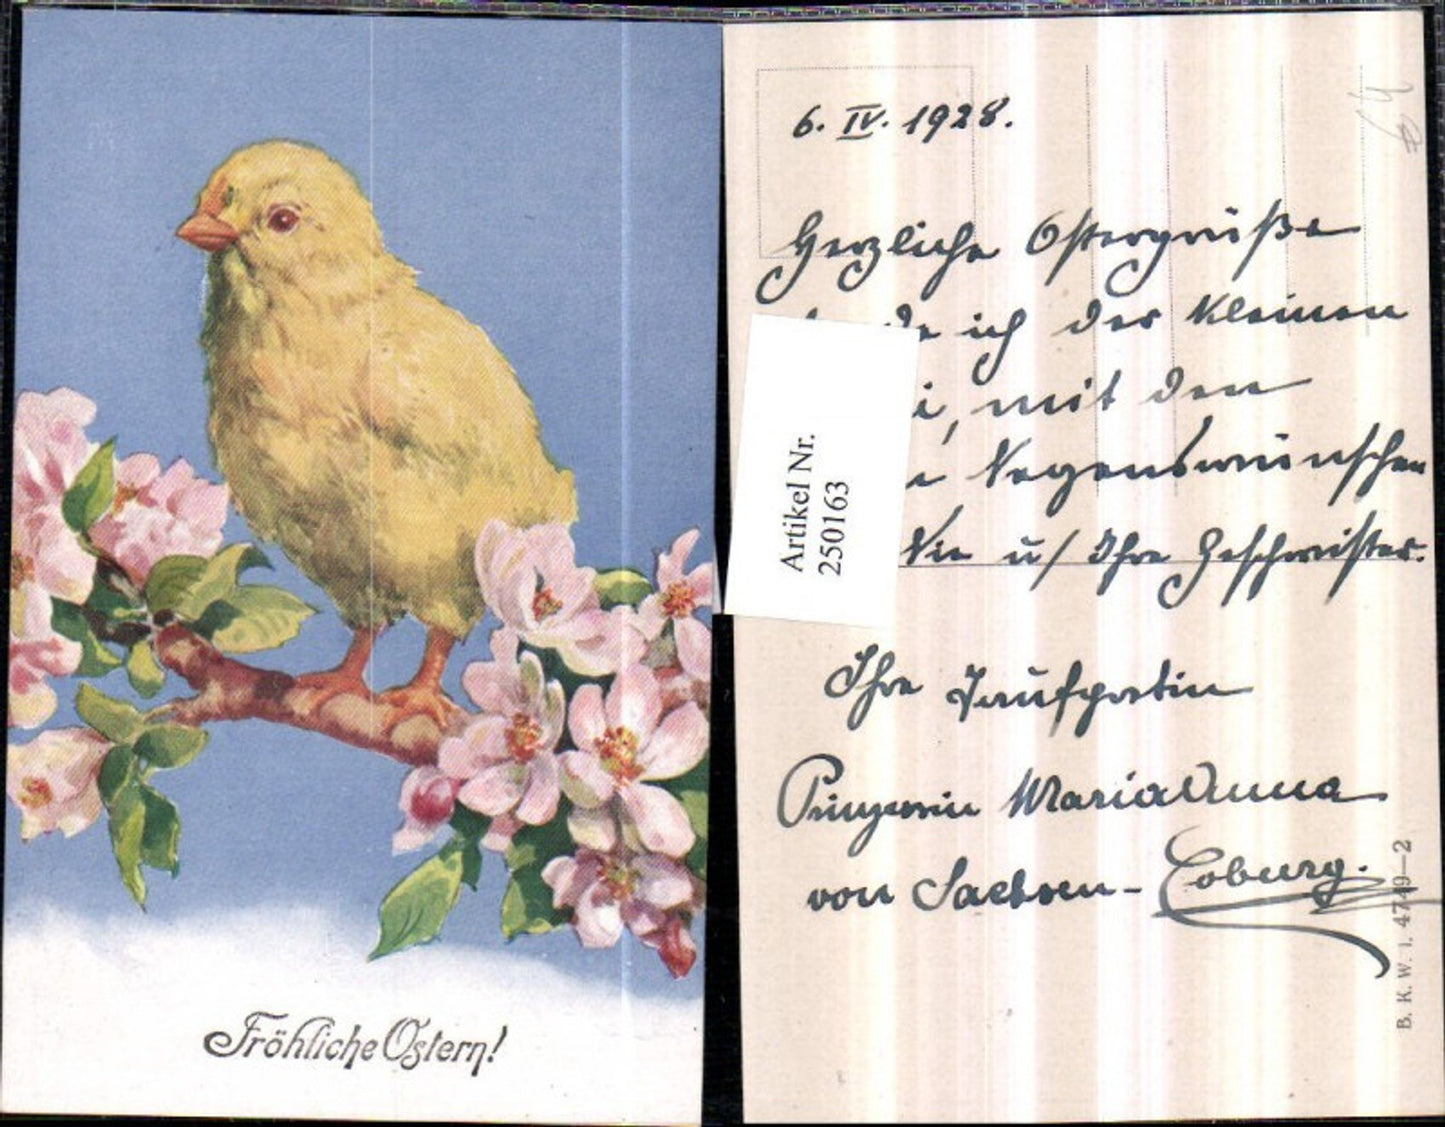 Fröhliche Ostern!
6. IV. 1928.
Herzliche Ostergrüße
ich der kleinen
mit den
Segenswünschen
Sie u/ Ihre Geschwister.
Ihre Taufpatin
Prinzessin Maria Anna
von Sachsen-Coburg.
Artikel Nr.
250163
B. K. W. I. 4749–2